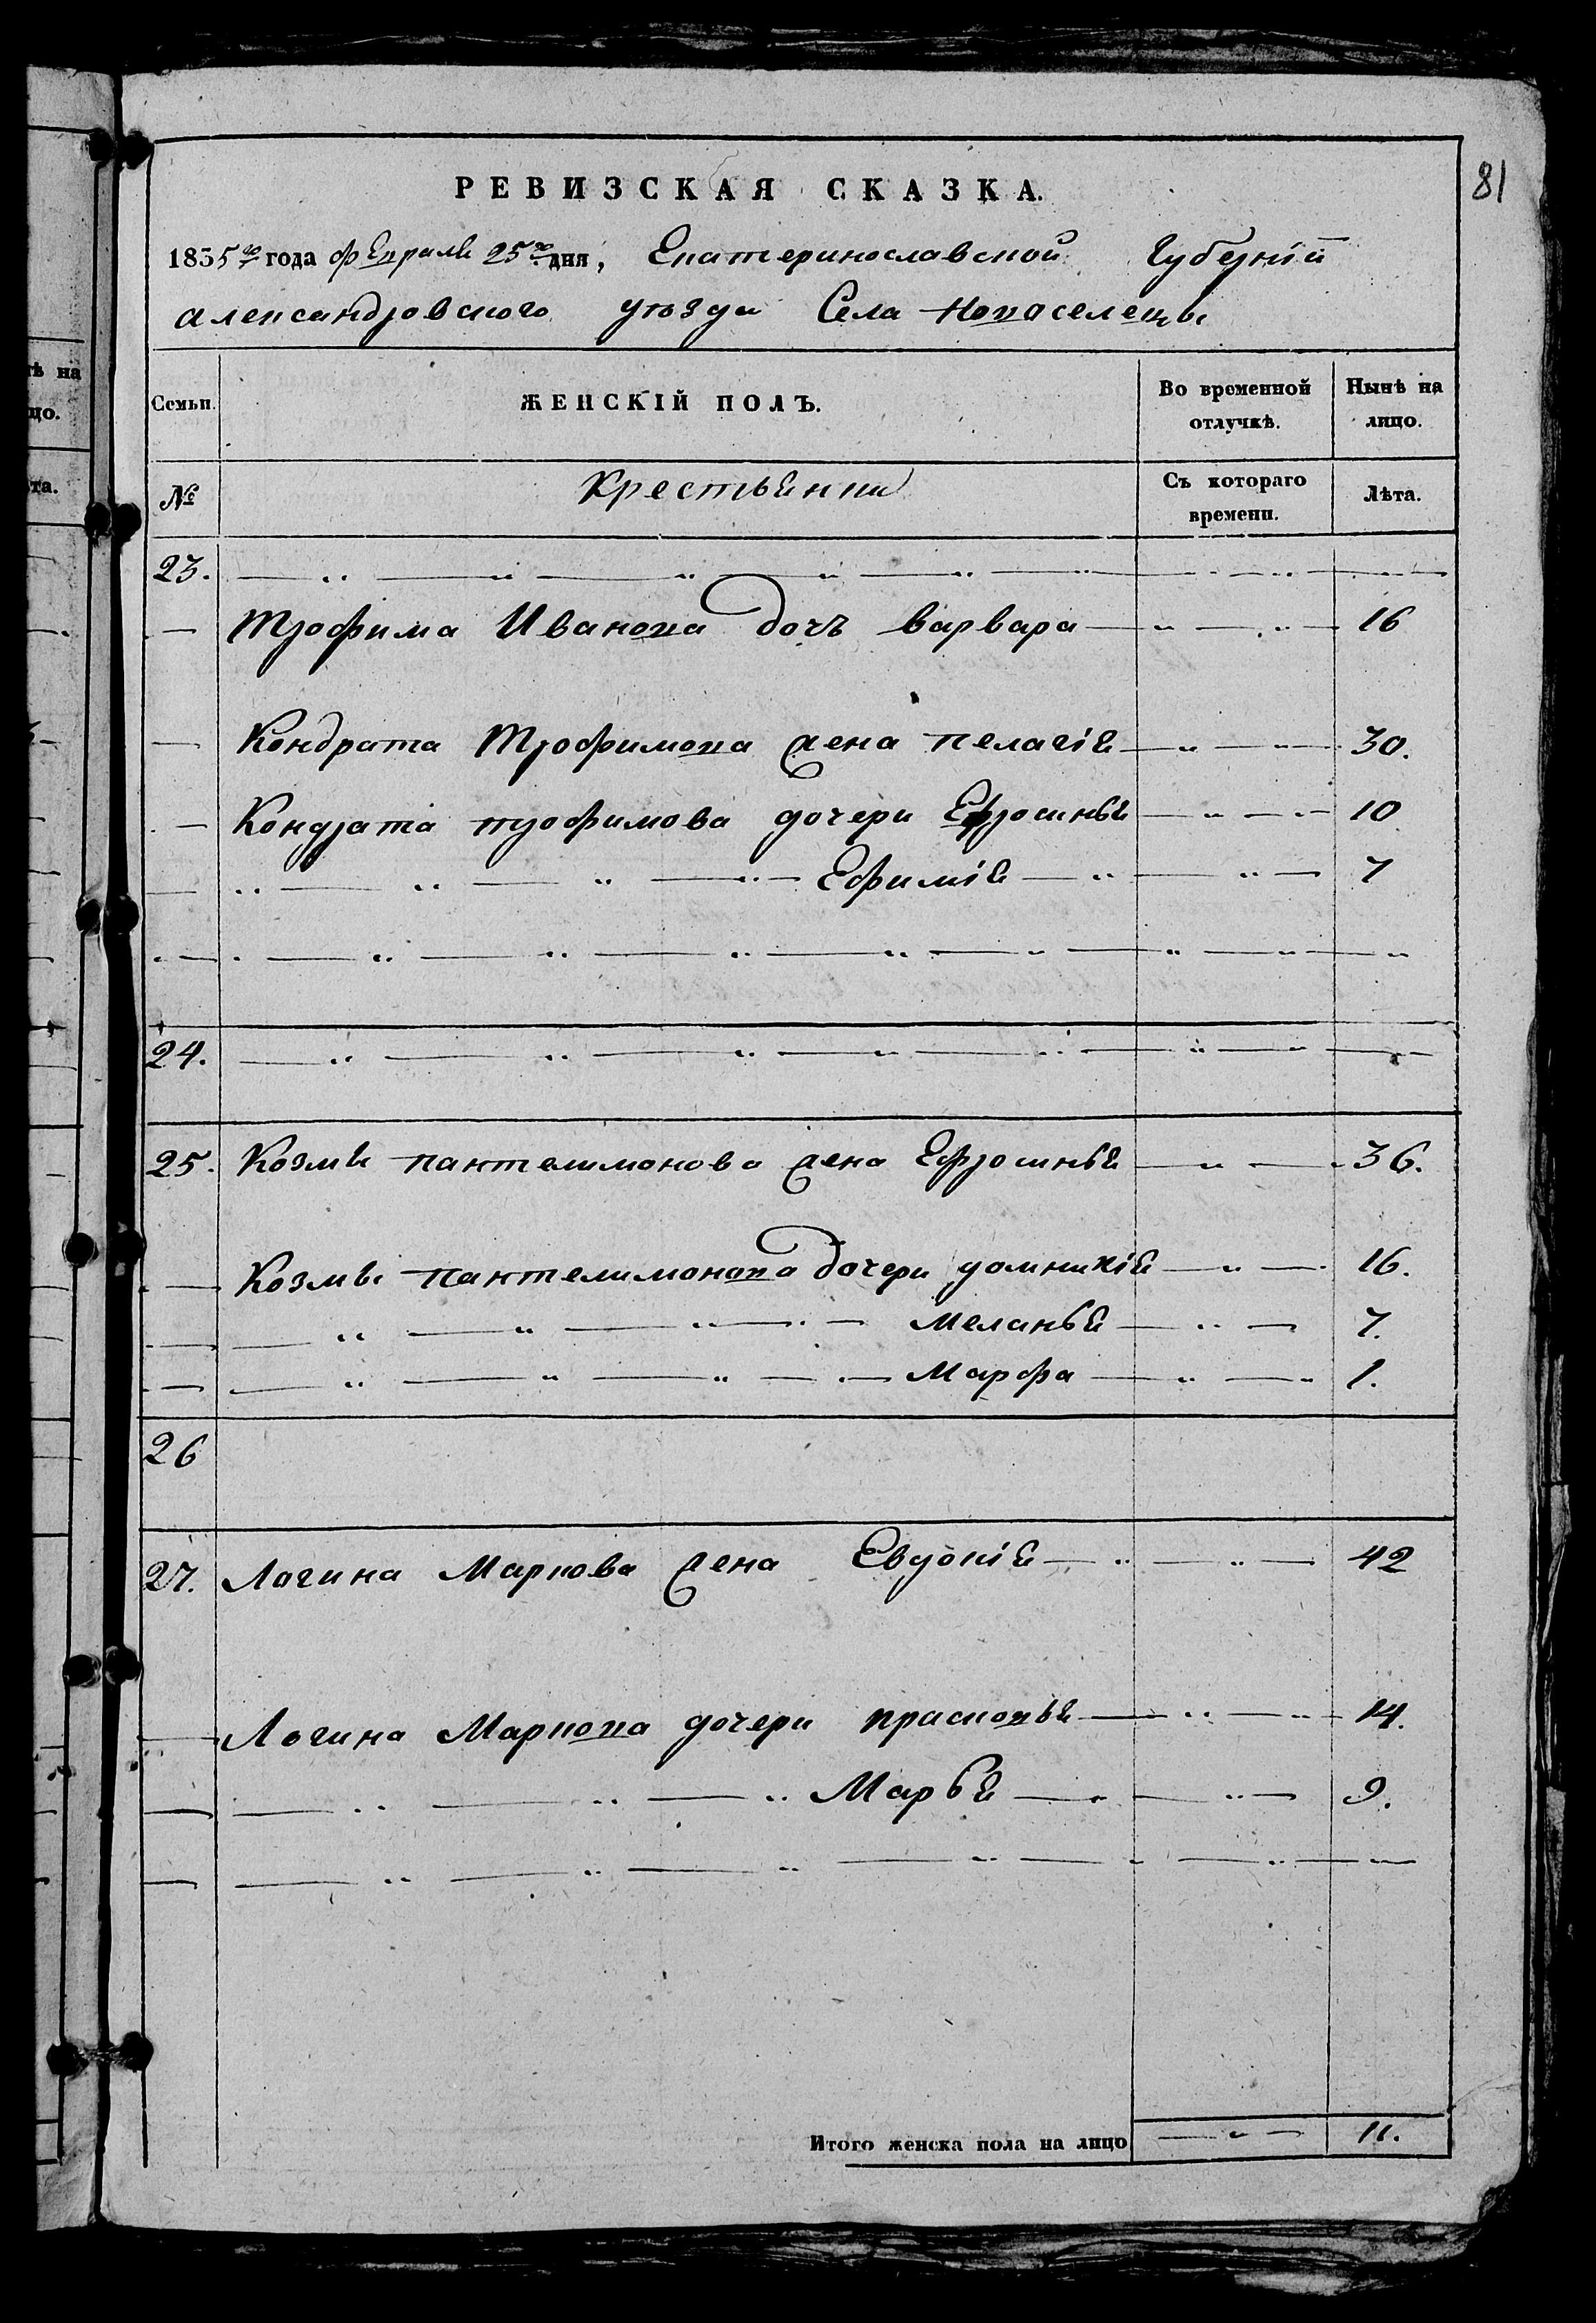 81
РЕВИЗСКАЯ СКАЗКА.
1835го года февраля 25го дня, Екатеринославской Губерніи
Александровского уѣзда Села Новоселецы
ѣ на
цо.
та.
Семьи. ЖЕНСКІЙ ПОЛЪ. Во временной отлучкѣ. Нынѣ на лицо.
№ Крестьянки Съ котораго времени. Лѣта.
23.
Трофима Иванова дочъ варвара 16
Кондрата Трофимова жена пелагія 30.
Кондрата трофимова дочери Ефросинья 10
Ефимія 7
24.
25. Козмы пантелимонова жена Ефросинья 36.
Козмы пантелимонова дочери домникія 16.
Меланья 7.
Марфа 1.
26
27. Логина Маркова жена Евдокія 42
Логина Маркова дочери прасковья 14.
Марья 9.
Итого женска пола на лицо 11.